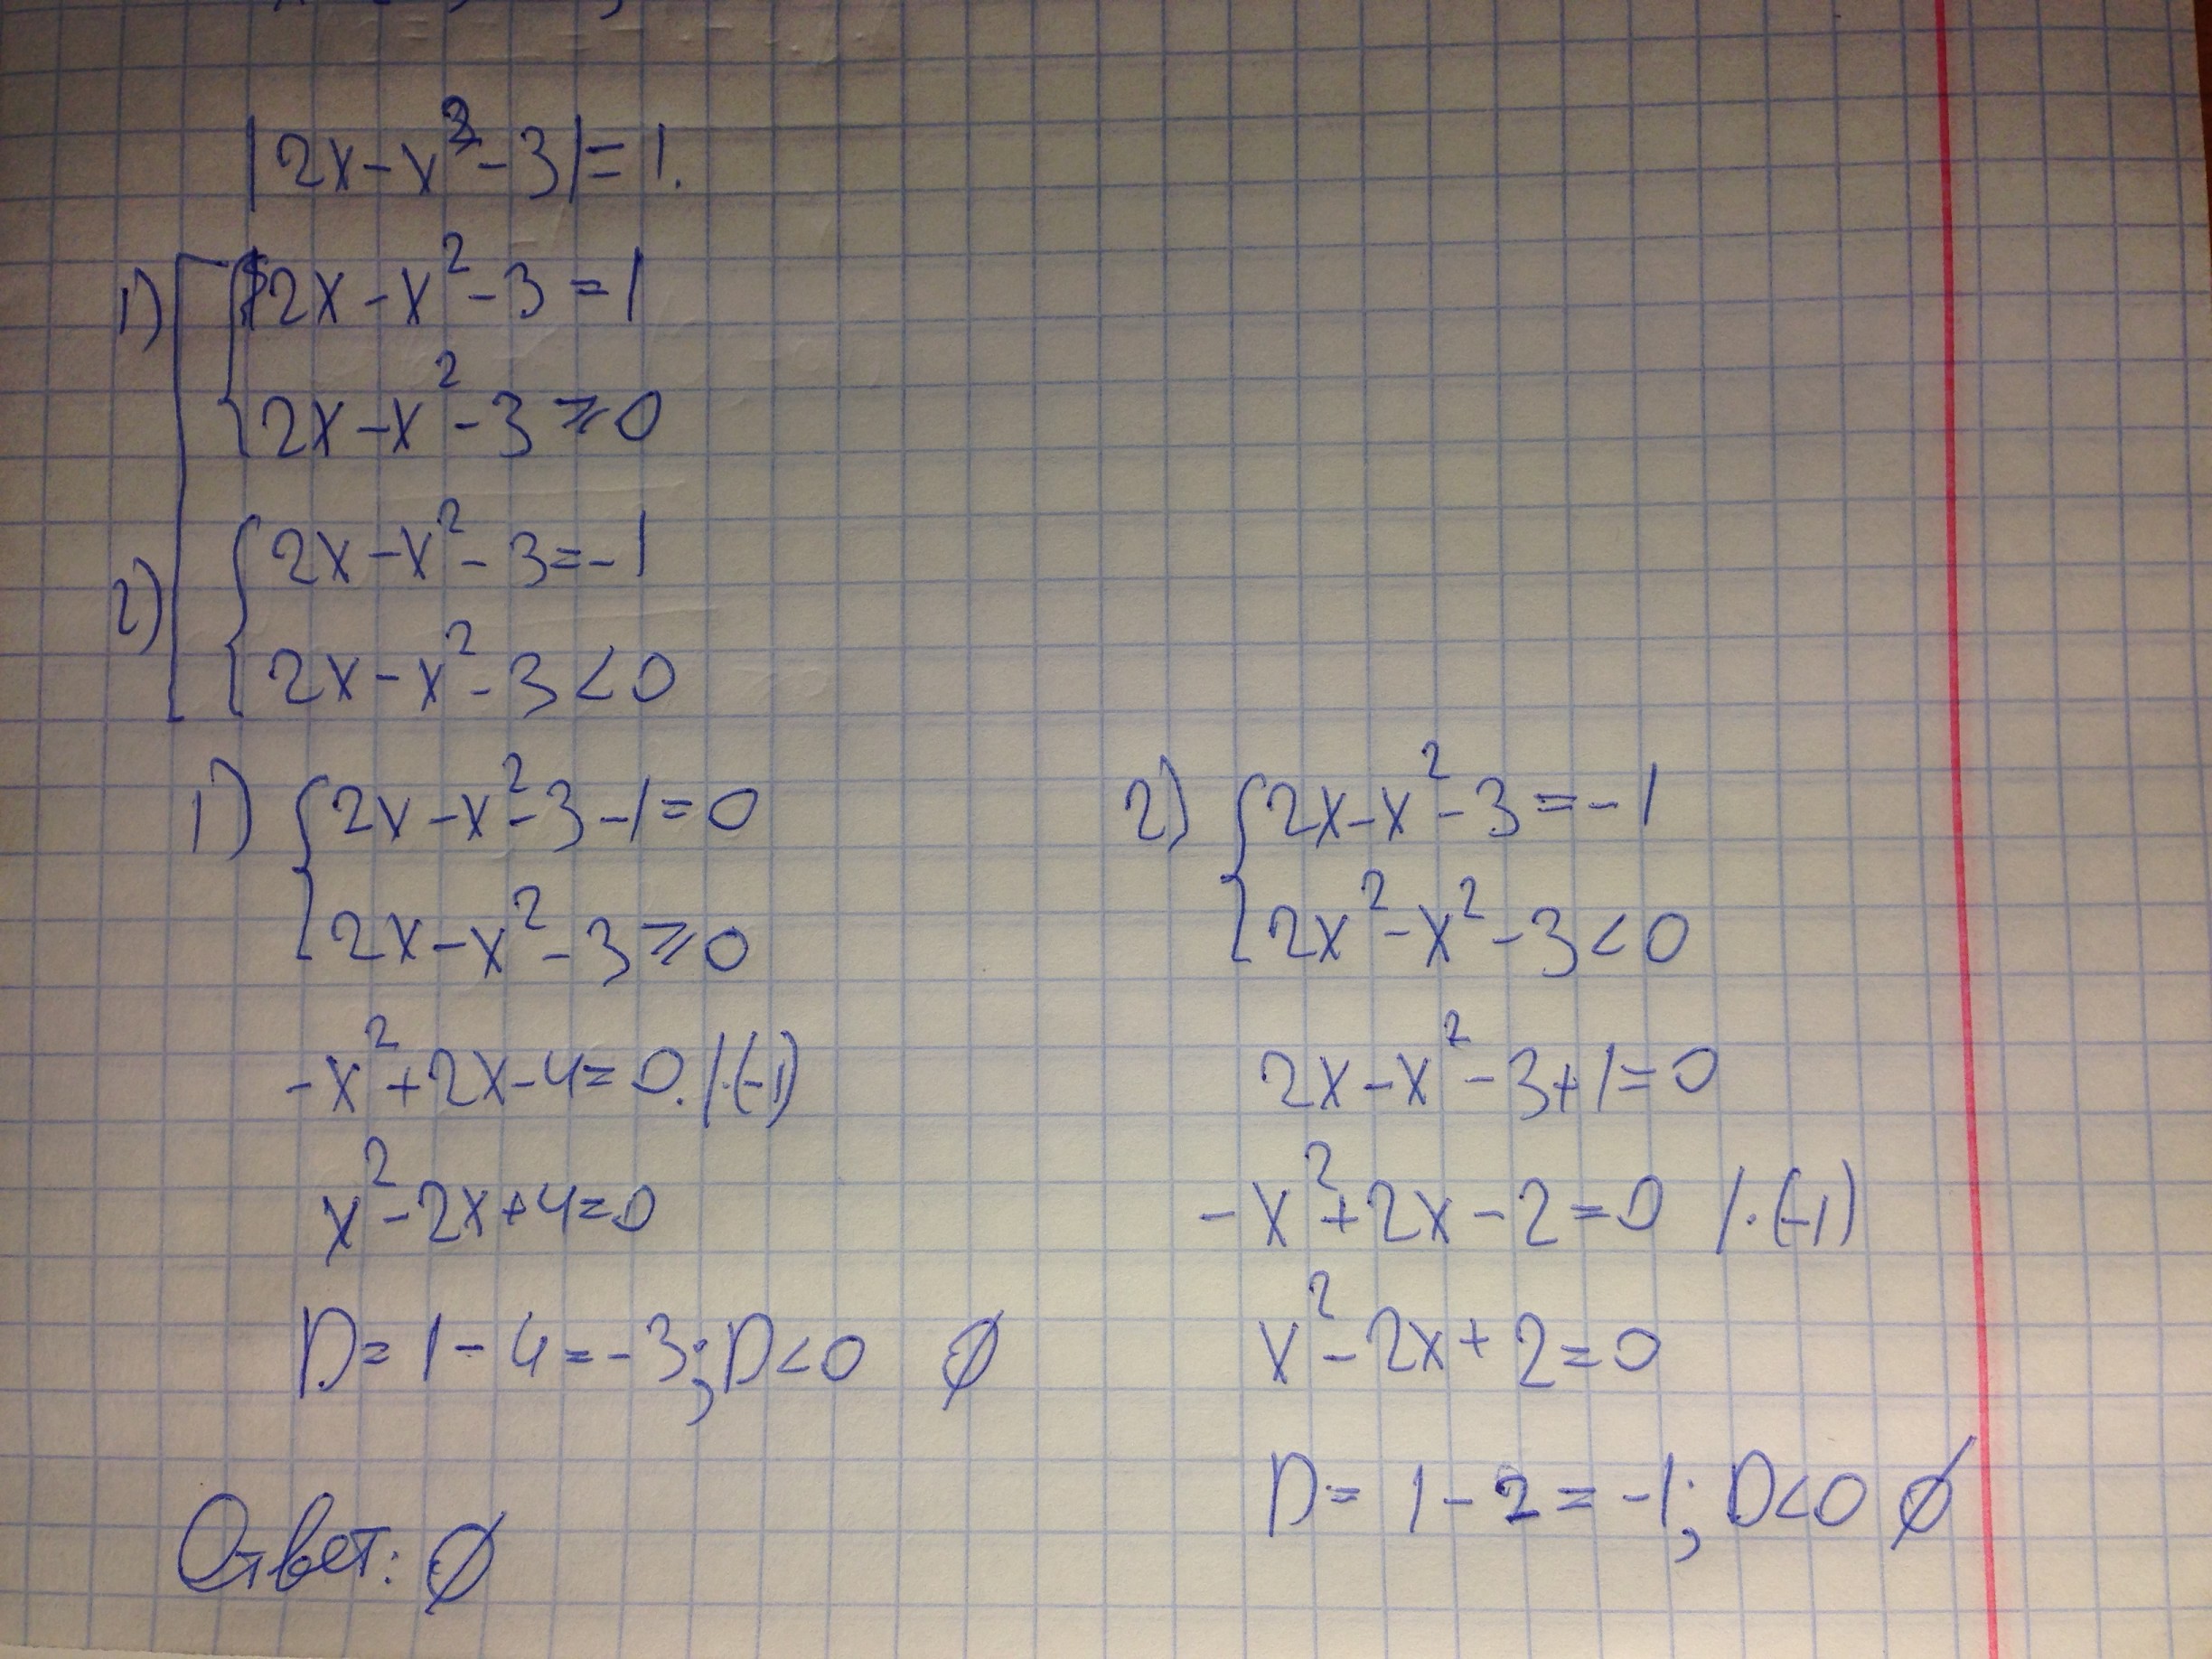 |2x-x²-3|=1.
1) 2x-x²-3=1
2x-x²-3≥0
2) 2x-x²-3=-1
2x-x²-3<0
1) 2x-x²-3-1=0
2x-x²-3≥0
-x²+2x-4=0. /·(-1)
x²-2x+4=0
D=1-4=-3; D<0 ∅
2) 2x-x²-3=-1
2x²-x²-3<0
2x-x²-3+1=0
-x²+2x-2=0 /·(-1)
x²-2x+2=0
D=1-2=-1; D<0 ∅
Ответ: ∅